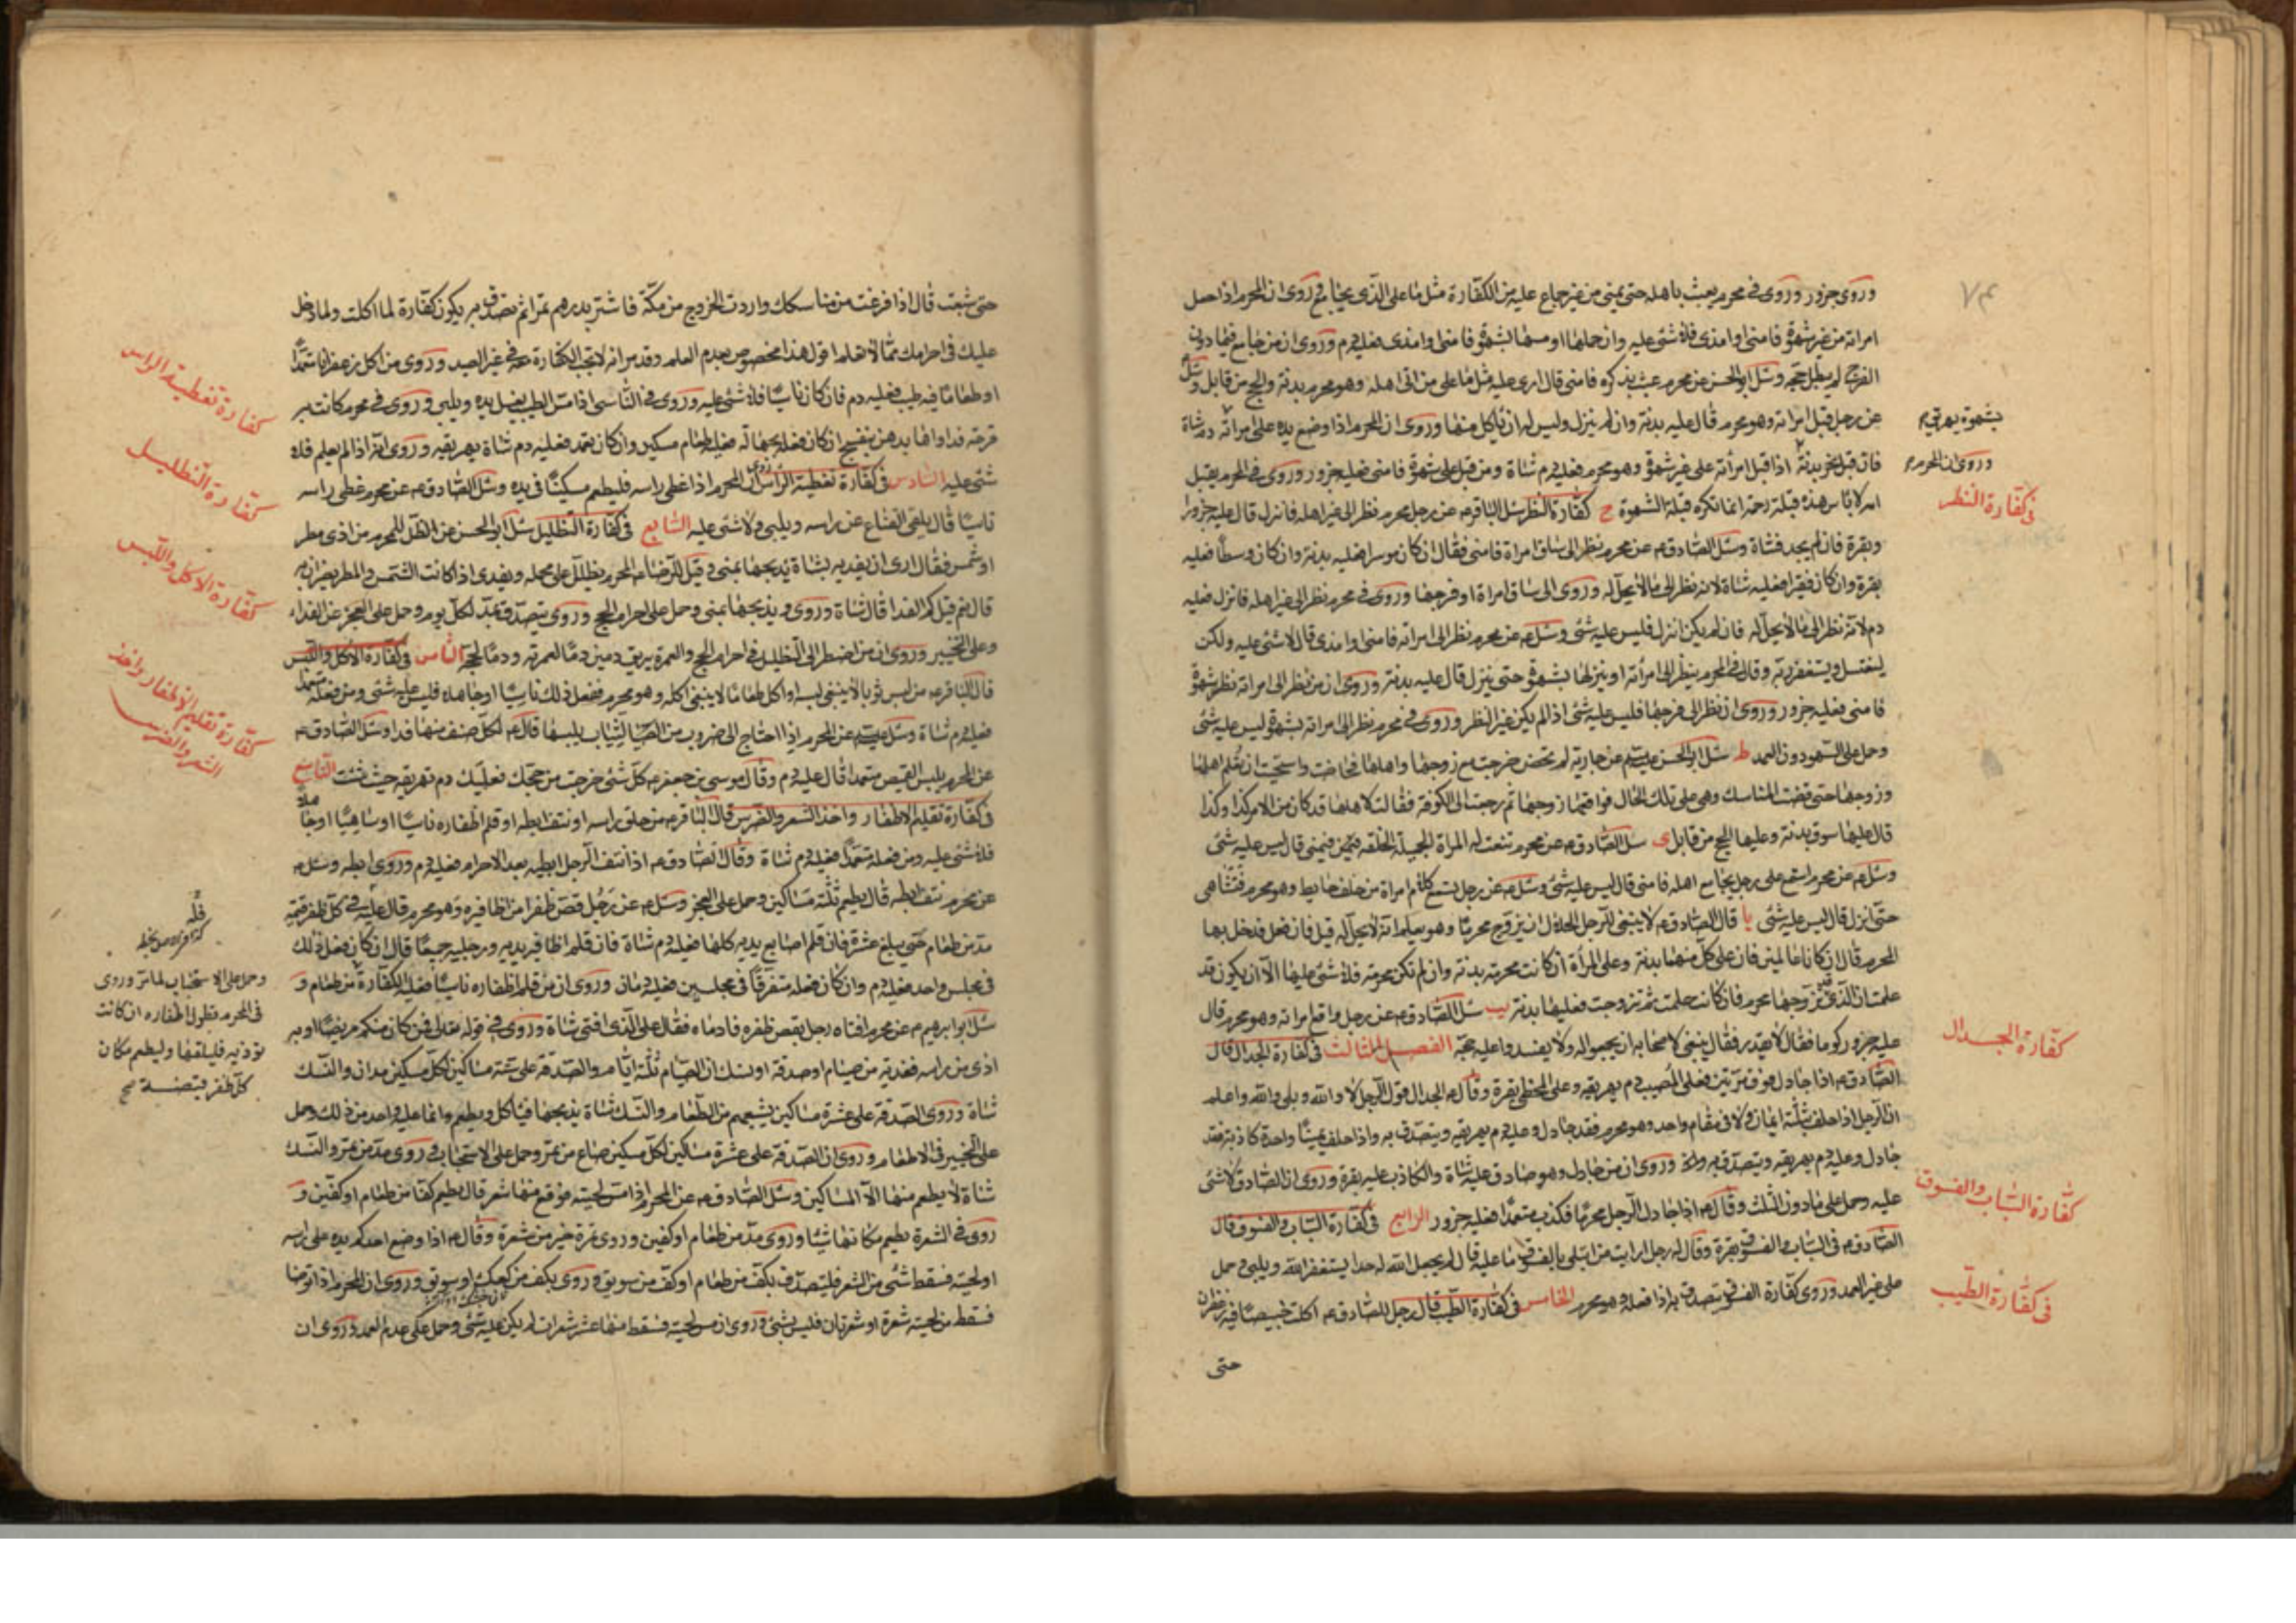 وروى جزور وروى فى محرم يعبث باهله حتى يمنى من غير جماع عليه من الكفارة مثل ما على الذى يجامع وروى ان المحرم اذا حمل
امراته من غير شهوة فامنى او امذى فلا شئ عليه وان حملها او مسها بشهوة فامنى او امذى فعليه دم وروى ان من جامع فيما دون
الفرج لم يبطل حجه وسئل ابو الحسن عن محرم عبث بذكره فامنى قال ارى عليه مثل ما على من اتى اهله وهو محرم بدنة والحج من قابل وسئل
عن رجل قبل امراته وهو محرم قال عليه بدنة وان لم ينزل وليس له ان ياكل منها وروى ان المحرم اذا وضع يده على امراته دم شاة
فان قبل فبدنة اذا قبل امرأته على غير شهوة وهو محرم فعليه دم شاة ومن قبل على شهوة فامنى فعليه جزور وروى فى المحرم يقبل
امه لا باس هذه قبلة رحمة انما تكره قبلة الشهوة ح كفارة النظر سئل الباقر ع عن رجل محرم نظر الى غير اهله فانزل قال عليه جزور
وبقرة فان لم يجد فشاة وسئل الصادق ع عن محرم نظر الى ساق امراة فامنى فقال ان كان موسرا فعليه بدنة وان كان وسطا فعليه
بقرة وان كان فقيرا فعليه شاة لانه نظر الى ما لا يحل له وروى الى ساق امراة او فرجها وروى فى محرم نظر الى غير اهله فانزل فعليه
دم لانه نظر الى ما لا يحل له فان لم يكن انزل فليس عليه شئ وسئل ع عن محرم نظر الى امراته فامنى او امذى قال لا شئ عليه ولكن
ليغتسل ويستغفر ربه وقال فى المحرم ينظر الى امرأته او ينزلها بشهوة حتى ينزل قال عليه بدنة وروى ان من نظر الى امراته نظر شهوة
فامنى فعليه جزور وروى ان نظر الى فرجها فليس عليه شئ اذا لم يكن غير النظر وروى فى محرم نظر الى امراته بشهوة ليس عليه شئ
وحمل على السهو دون العمد ط سئل ابو الحسن ع عن جارية لم تحض خرجت مع زوجها واهلها فحاضت واستحيت ان تعلم اهلها
وزوجها حتى قضت المناسك وهى على تلك الحال فواقعها زوجها ثم رجعت الى الكوفة فقالت لاهلها قد كان من الامر كذا وكذا
قال عليها سوق بدنة وعليها الحج من قابل ى سئل الصادق ع عن محرم تنعت له المراة الجميلة الخلقة فيمنى قال ليس عليه شئ
وسئل ع عن محرم استمع على رجل يجامع اهله فامنى قال ليس عليه شئ وسئل ع عن رجل يسمع كلام امراة من خلف حايط وهو محرم فتشاهى
حتى انزل قال ليس عليه شئ يا قال الصادق ع لا ينبغى للرجل الحلال ان يزوج محرما وهو يعلم انه لا يحل له قيل فان فعل فدخل بها
المحرم قال ان كانا عالمين فان على كل منهما بدنة وعلى المرأة ان كانت محرمة بدنة وان لم تكن محرمة فلا شئ عليها الا ان يكون قد
علمت ان الذى تزوجها محرم فان كانت علمت ثم تزوجت فعليها بدنة يب سئل الصادق ع عن رجل واقع امراته وهو محرم قال
عليه جزور كوما فقال لا يقدر فقال ينبغى لاصحابه ان يجمعوا له ولا يفسدوا عليه حجه الفصل الثالث فى كفارة الجدال قال
الصادق ع اذا جادل فوق مرتين فعلى المصيب دم يهريقه وعلى المخطى بقرة وقال ع الجدال قول الرجل لا والله وبلى والله واعلم
ان الرجل اذا حلف بثلثة ايمان ولا فى مقام واحد وهو محرم فقد جادل وعليه دم يهريقه ويتصدق به واذا حلف يمينا واحدة كاذبة فقد
جادل وعليه دم يهريقه ويتصدق به وروى ان من جادل وهو صادق عليه شاة والكاذب عليه بقرة وروى ان الصادق لا شئ
عليه وحمل على ما دون الثلث وقال ع اذا جادل الرجل محرما فكذب متعمدا فعليه جزور الرابع فى كفارة السباب والفسوق قال
الصادق ع فى السباب والفسوق بقرة وقال له رجل ارايت من ابتلى بالفسوق ما عليه قال لم يجعل الله له حدا يستغفر الله ويلبى وحمل
على غير العمد وروى كفارة الفسوق يتصدق به اذا فعله وهو محرم الخامس فى كفارة الطيب قال رجل للصادق ع اكلت خبيصا فيه زعفران
حتى
٧٤
فى كفارة النظر
كفارة الجدال
كفارة السباب والفسوق
فى كفارة الطيب
حتى شبعت قال اذا فرغت من مناسكك واردت الخروج من مكة فاشتر بدرهم تمرا ثم تصدق به يكون كفارة لما اكلت ولما دخل
عليك فى احرامك مما لا تعلم اقول هذا مخصوص بعدم العلم وقد مر انه لا تجب الكفارة معه فى غير الصيد وروى من اكل زعفرانا متعمدا
او طعاما فيه طيب فعليه دم فان كان ناسيا فلا شئ عليه وروى فى الناسى اذا مس الطيب يغسل يده ويلبى وروى فى محرم كانت به
قرحة فداواها بدهن بنفسج ان كان فعله بجهالة فعليه طعام مسكين وان كان تعمد فعليه دم شاة يهريقه وروى انه اذا لم يعلم فلا
شئ عليه السادس فى كفارة تغطية الراس روى ان المحرم اذا غطى راسه فليطعم مسكينا فى يده وسئل الصادق ع عن محرم غطى راسه
ناسيا قال يلقى القناع عن راسه ويلبى ولا شئ عليه السابع فى كفارة التظليل سئل ابو الحسن عن الظل للمحرم من اذى مطر
او شمس فقال ارى ان يفديه بشاة يذبحها بمنى وقيل للرضا ع المحرم يظلل على محمله ويفدى اذا كانت الشمس والمطر يضران به
قال نعم قيل كم الفدا قال شاة وروى ويذبحها بمنى وحمل على احرام الحج وروى يتصدق بمد لكل يوم وحمل على العجز عن الفداء
وعلى التخيير وروى ان من اضطر الى التظليل فى احرام الحج والعمرة يريق دمين دما لعمرته ودما لحجه الثامن فى كفارة الاكل واللبس
قال الباقر ع من لبس ثوبا لا ينبغى لبسه او اكل طعاما لا ينبغى اكله وهو محرم ففعل ذلك ناسيا او جاهلا فليس عليه شئ ومن فعله متعمدا
فعليه دم شاة وسئل ع عن المحرم اذا احتاج الى ضروب من الثياب يلبسها قال ع لكل صنف منها فدا وسئل الصادق ع
عن المحرم يلبس القميص متعمدا قال عليه دم وقال موسى بن جعفر ع كل شئ خرجت من حجك فعليك دم تهريقه حيث شئت التاسع
فى كفارة تقليم الاظفار واخذ الشعر والضرس قال الباقر ع من حلق راسه او نتف ابطه او قلم اظفاره ناسيا او ساهيا او جاهلا
فلا شئ عليه ومن فعله متعمدا فعليه دم شاة وقال الصادق ع اذا نتف الرجل ابطيه بعد الاحرام فعليه دم وروى ابطه وسئل ع
عن محرم نتف ابطه قال يطعم ثلثة مساكين وحمل على العجز وسئل ع عن رجل قص ظفرا من اظافيره وهو محرم قال عليه فى كل ظفر قيمة
مد من طعام حتى يبلغ عشرة فان قلم اصابع يديه كلها فعليه دم شاة فان قلم اظافير يديه ورجليه جميعا قال ان كان فعل ذلك
فى مجلس واحد فعليه دم وان كان فعله متفرقا فى مجلسين فعليه دمان وروى ان من قلم اظفاره ناسيا فعليه الكفارة من طعام و
سئل ابو ابرهيم ع عن محرم افتاه رجل بقص ظفره فادماه فقال على الذى افتى شاة وروى فى قوله تعالى فمن كان منكم مريضا او به
اذى من راسه ففدية من صيام او صدقة او نسك ان الصيام ثلثة ايام والصدقة على ستة مساكين لكل مسكين مدان والنسك
شاة وروى الصدقة على عشرة مساكين يشبعهم من الطعام والنسك شاة يذبحها فياكل ويطعم وانما عليه واحد من ذلك وحمل
على التخيير فى الاطعام وروى ان الصدقة على عشرة مساكين لكل مسكين صاع من تمر وحمل على الاستحباب وروى مد من تمر والنسك
شاة لا يطعم منها الا المساكين وسئل الصادق ع عن المحرم اذا مس لحيته فوقع منها شعر قال يطعم كفا من طعام او كفين و
روى فى الشعرة يطعم مكانها شيئا وروى مد من طعام او كفين وروى تمرة خير من شعرة وقال ع اذا وضع احدكم يده على راسه
او لحيته فسقط شئ من الشعر فليتصدق بكف من طعام او كف من سويق وروى بكف من كعك او سويق وروى ان المحرم اذا توضا
فسقط من لحيته شعرة او شعرتان فليس بشئ وروى ان مس لحيته فسقط منها عشر شعرات لم يكن عليه شئ وحمل على عدم العمد وروى ان
كفارة تغطية الراس
كفارة التظليل
كفارة الاكل واللبس
كفارة تقليم الاظفار واخذ
الشعر والضرس
وحمل على الاستحباب لما مر وروى
فى المحرم تطول اظفاره ان كانت
تؤذيه فليقلمها وليطعم مكان
كل ظفر قبضة